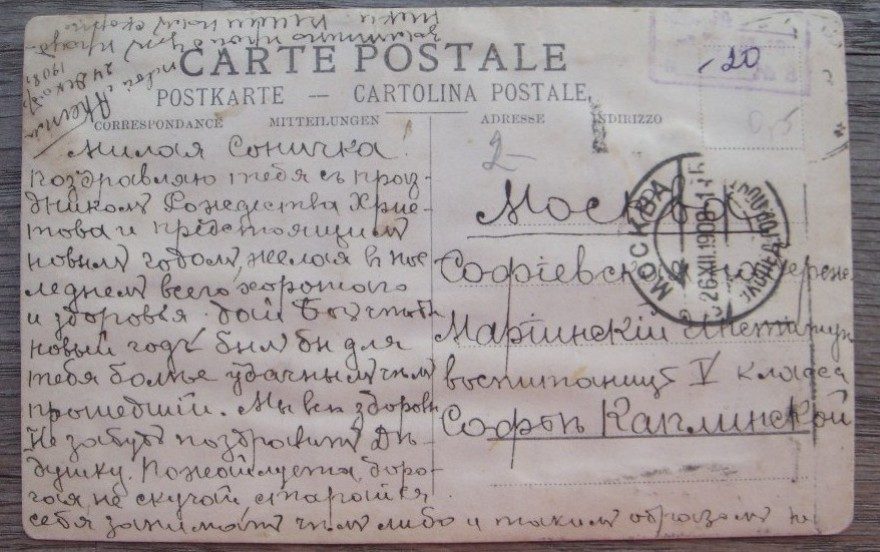 CARTE POSTALE
POSTKARTE — CARTOLINA POSTALE
CORRESPONDANCE MITTEILUNGEN ADRESSE INDIRIZZO
24 Дек.
1908 г.
Милая Соничка!
поздравляю тебя съ праз-
дникомъ Рождества Хрис-
това и предстоящимъ
новымъ годомъ, желая въ пос
леднемъ всего хорошаго
и здоровья. дай Богъ чтобы
новый годъ былъ бы для
тебя болѣе удачнымъ чѣмъ
прошедшій. Мы всѣ здоровы
Не забудь поздравить Дѣ-
душку. Пожайлуста, доро-
гая, не скучай старайся
себя занимать чѣмъ либо и такимъ образомъ не
-20
0,5
2-
Москва
Софіевская набережн.
Маріинскій Институтъ
воспитанницѣ V класса
Софьѣ Каплинской
МОСКВА
26.XII.1908